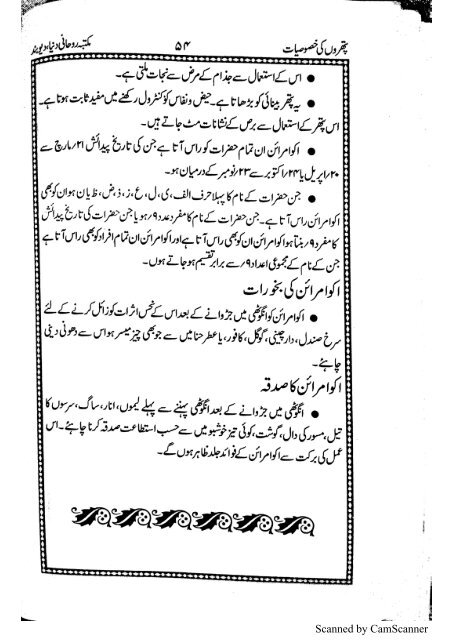 پتھروں کی خصوصیات ۵۴ مکتبہ روحانی دنیا، دیوبند
● اس کے استعمال سے جذام کے مرض سے نجات ملتی ہے۔
● یہ پتھر بینائی کو بڑھاتا ہے۔ حیض و نفاس کو کنٹرول رکھنے میں مفید ثابت ہوتا ہے۔
اس پتھر کے استعمال سے برص کے نشانات مٹ جاتے ہیں۔
● اکوامرائن ان تمام حضرات کو راس آتا ہے جن کی تاریخ پیدائش ۲۱؍مارچ سے
۲۰؍اپریل یا ۲۴؍اکتوبر سے ۲۳؍نومبر کے درمیان ہو۔
● جن حضرات کے نام کا پہلا حرف الف، ی، ل، ع، ز، ذ، ض، ظ یا ن ہو ان کو بھی
اکوامرائن راس آتا ہے۔ جن حضرات کے نام کا مفرد عدد ۹؍ہو یا جن حضرات کی تاریخ پیدائش
کا مفرد ۹؍بنتا ہو اکوامرائن ان کو بھی راس آتا ہے اور اکوامرائن ان تمام افراد کو بھی راس آتا ہے
جن کے نام کے مجموعی اعداد ۹؍سے برابر تقسیم ہو جاتے ہوں۔
اکوامرائن کی بخورات
● اکوامرائن کو انگوٹھی میں جڑوانے کے بعد اس کے نحس اثرات کو زائل کرنے کے لئے
سرخ صندل، دارچینی، گوگل، کافور، یا عطر حنا میں سے جو بھی چیز میسر ہو اس سے دھونی دینی
چاہئے۔
اکوامرائن کا صدقہ
● انگوٹھی میں جڑوانے کے بعد انگوٹھی پہننے سے پہلے لیموں، انار، ساگ، سرسوں کا
تیل، مسور کی دال، گوشت، کوئی تیز خوشبو میں سے حسب استطاعت صدقہ کرنا چاہئے۔ اس
عمل کی برکت سے اکوامرائن کے فوائد جلد ظاہر ہوں گے۔
Scanned by CamScanner